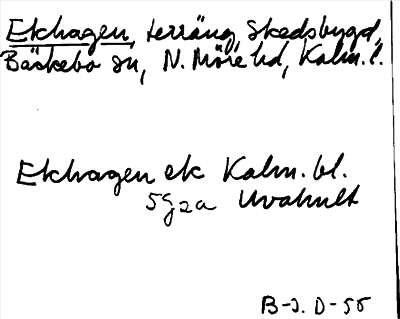 Ekhagen, terräng, Skedsbygd,
Bäckebo sn, N. Möre hd, Kalm. l.
Ekhagen ek Kalm. bl.
5G2a Uvahult
B-J. D-55